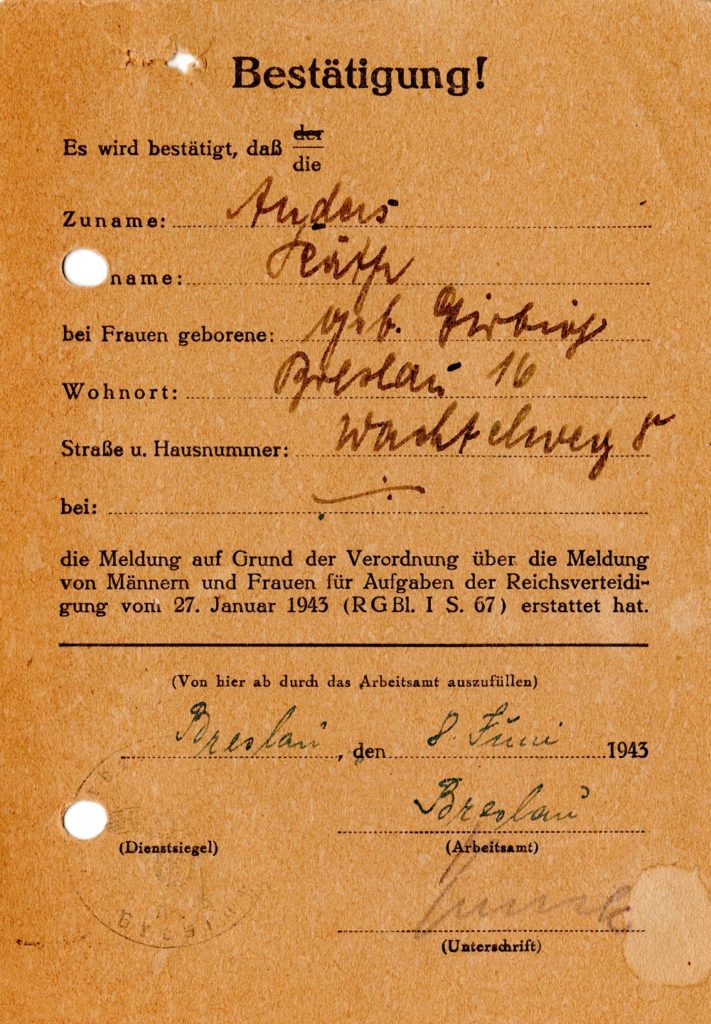 Bestätigung!
Es wird bestätigt, daß der
die
Zuname: Anders
name: Käthe
bei Frauen geborene: geb.
Wohnort: Breslau 16
Straße u. Hausnummer: Wachtelweg 8
bei:
die Meldung auf Grund der Verordnung über die Meldung
von Männern und Frauen für Aufgaben der Reichsverteidi-
gung vom 27. Januar 1943 (RGBl. I S. 67) erstattet hat.
(Von hier ab durch das Arbeitsamt auszufüllen)
Breslau, den 8. Juni 1943
Breslau
(Dienstsiegel) (Arbeitsamt)
(Unterschrift)